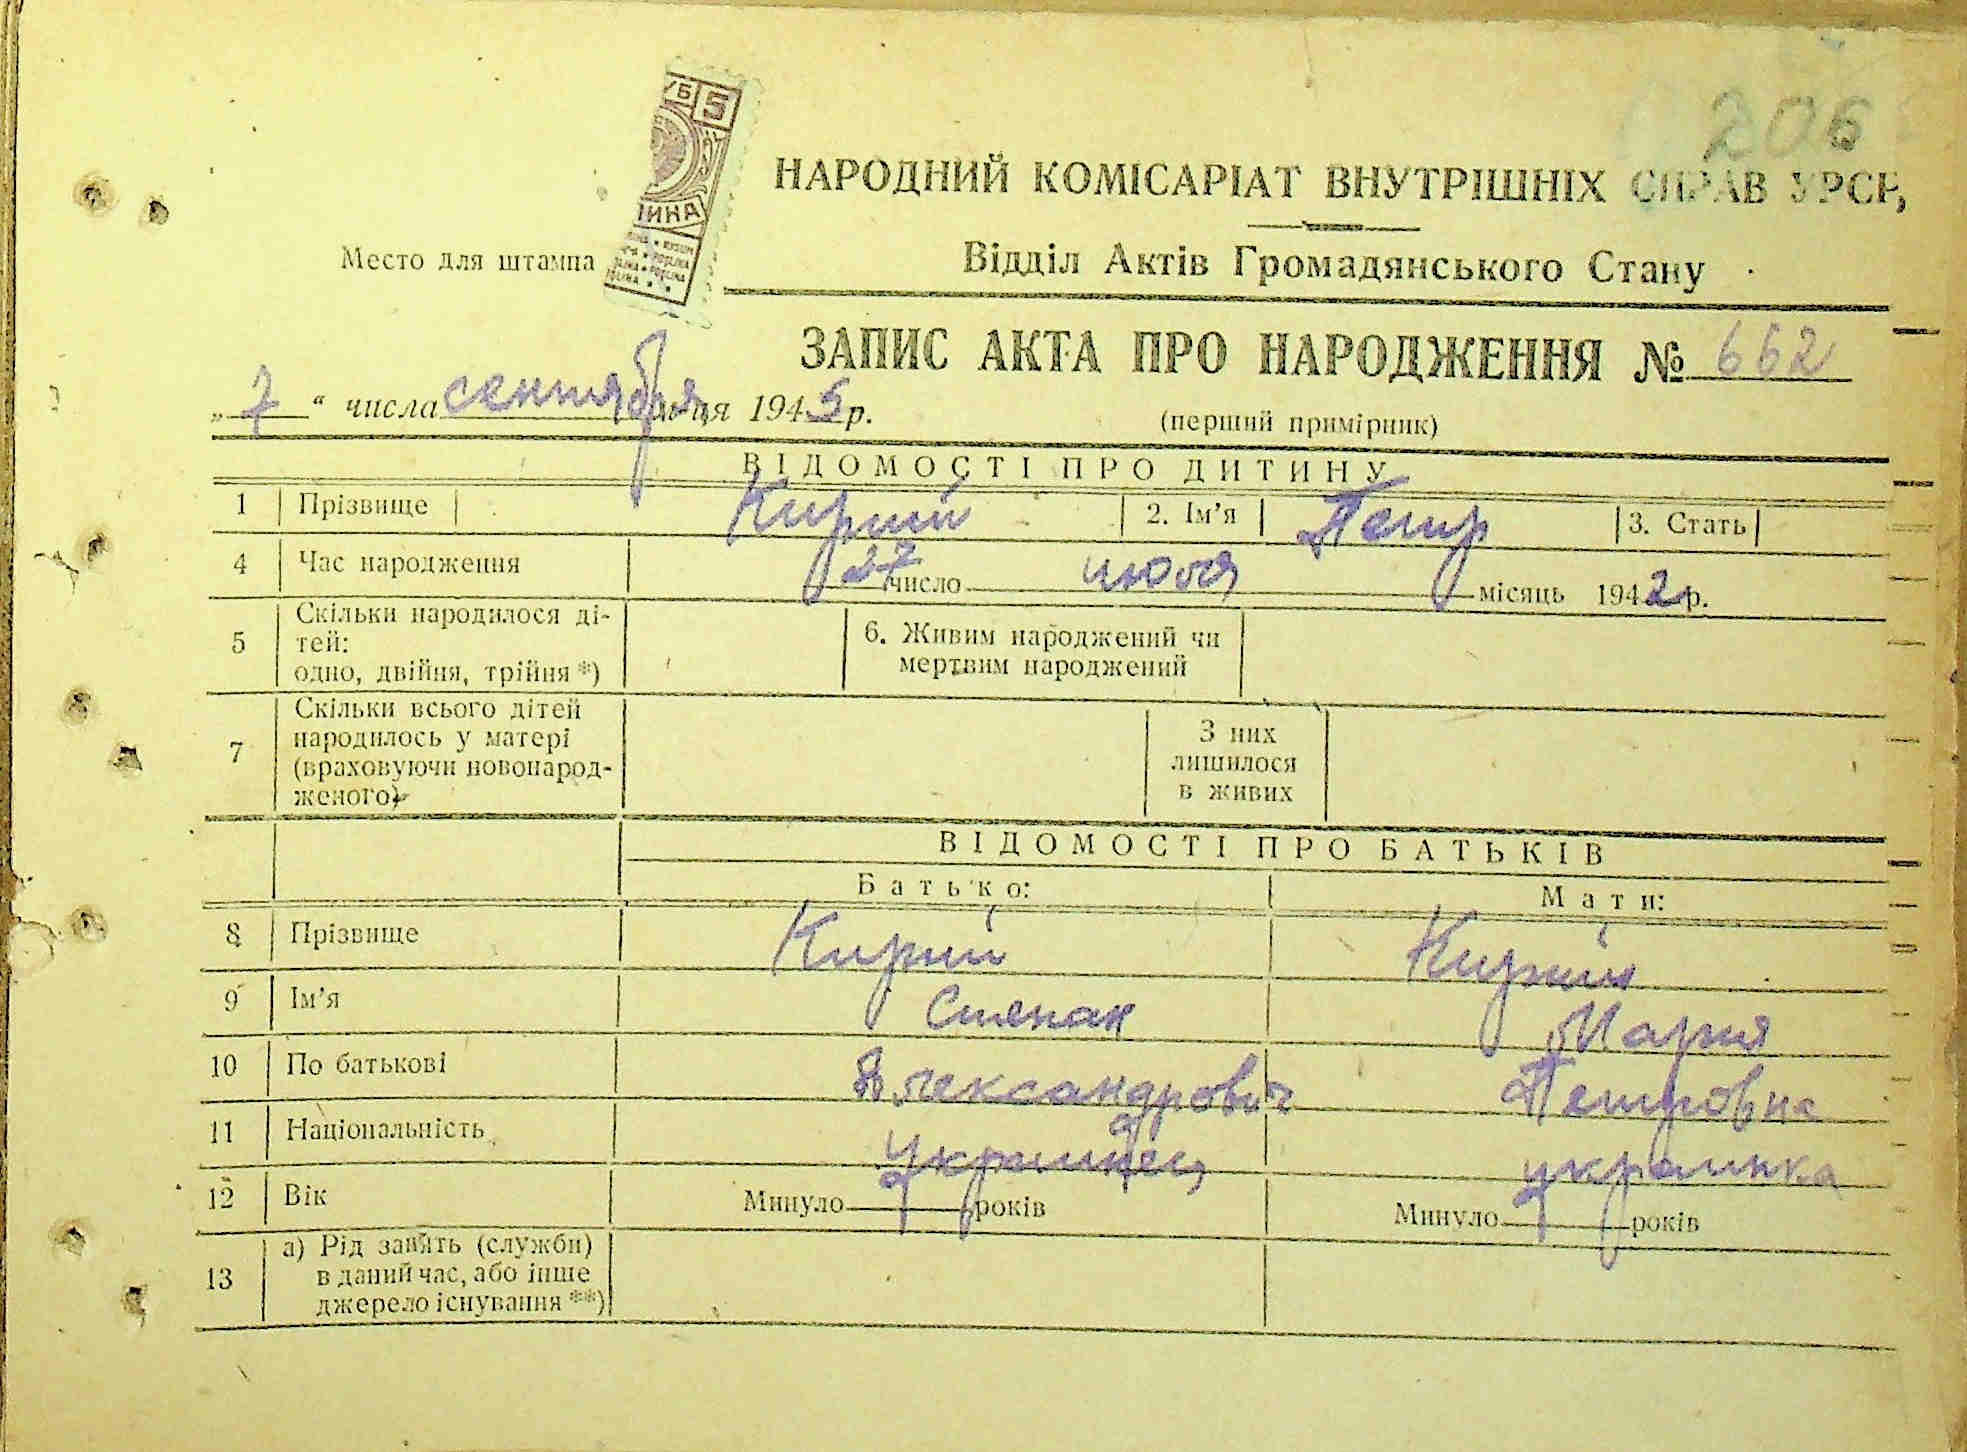 206
НАРОДНИЙ КОМІСАРІАТ ВНУТРІШНІХ СПРАВ УРСР,
Место для штампа
Відділ Актів Громадянського Стану
ЗАПИС АКТА ПРО НАРОДЖЕННЯ № 662
„ 7 “ числа сентября місяця 1945 р.
(перший примірник)
ВІДОМОСТІ ПРО ДИТИНУ
1 Прізвище Кирий 2. Ім’я Петр 3. Стать
4 Час народження 27 число июля місяць 1942 р.
5 Скільки народилося ді-
тей:
одно, двійня, трійня *)
6. Живим народжений чи
мертвим народжений
7 Скільки всього дітей
народилось у матері
(враховуючи новонарод-
женого)
З них
лишилося
в живих
ВІДОМОСТІ ПРО БАТЬКІВ
Батько: Мати:
8 Прізвище Кирий Кирий
9 Ім’я Степан Мария
10 По батькові Александрович Петровна
11 Національність украинец украинка
12 Вік Минуло років Минуло років
13 а) Рід занять (служби)
в даний час, або інше
джерело існування **)